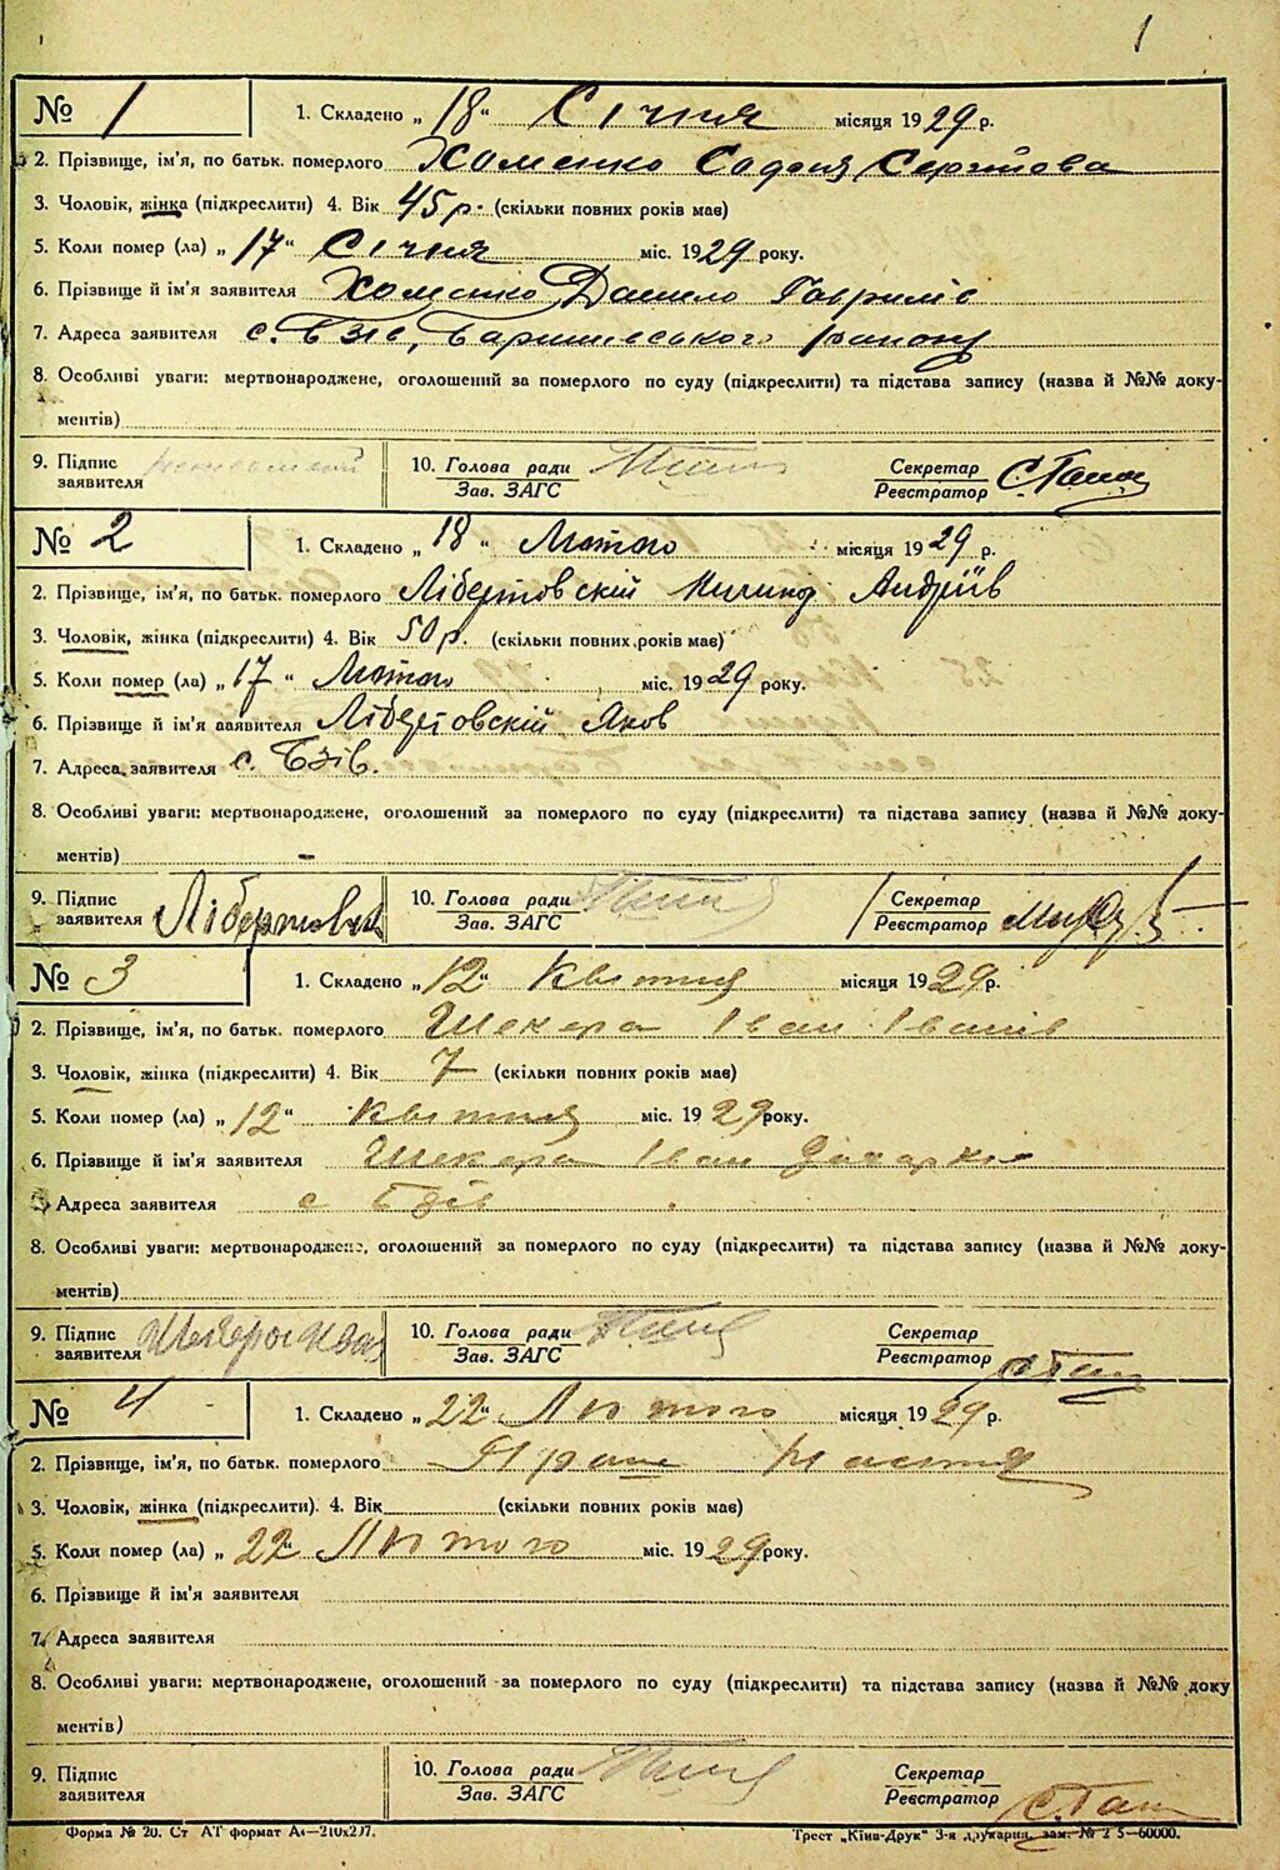 1
№ 1 1. Складено „18“ Січня місяця 1929 р.
2. Прізвище, ім'я, по батьк. померлого Хоменко Софія Сергіїова
3. Чоловік, жінка (підкреслити) 4. Вік 45 р. (скільки повних років має)
5. Коли помер (ла) „17“ Січня міс. 1929 року.
6. Прізвище й ім'я заявителя Хоменко Данило Гаврилів
7. Адреса заявителя с. Бзів, Баришівського району
8. Особливі уваги: мертвонароджене, оголошений за померлого по суду (підкреслити) та підстава запису (назва й №№ доку-
ментів)
9. Підпис заявителя 10. Голова ради Зав. ЗАГС Секретар Реєстратор
№ 2 1. Складено „18“ Лютого місяця 1929 р.
2. Прізвище, ім'я, по батьк. померлого Лібертовскій Андріїв
3. Чоловік, жінка (підкреслити) 4. Вік 50 р. (скільки повних років має)
5. Коли помер (ла) „17“ Лютого міс. 1929 року.
6. Прізвище й ім'я заявителя Лібертовскій Яков
7. Адреса заявителя с. Бзів.
8. Особливі уваги: мертвонароджене, оголошений за померлого по суду (підкреслити) та підстава запису (назва й №№ доку-
ментів) -
9. Підпис заявителя 10. Голова ради Зав. ЗАГС Секретар Реєстратор
№ 3 1. Складено „12“ Квітня місяця 1929 р.
2. Прізвище, ім'я, по батьк. померлого Шекера Іван Іванів
3. Чоловік, жінка (підкреслити) 4. Вік 7 (скільки повних років має)
5. Коли помер (ла) „12“ Квітня міс. 1929 року.
6. Прізвище й ім'я заявителя Шекера Іван
Адреса заявителя с Бзів
8. Особливі уваги: мертвонароджене, оголошений за померлого по суду (підкреслити) та підстава запису (назва й №№ доку-
ментів)
9. Підпис заявителя 10. Голова ради Зав. ЗАГС Секретар Реєстратор
№ 4 1. Складено „22“ Лютого місяця 1929 р.
2. Прізвище, ім'я, по батьк. померлого Настя
3. Чоловік, жінка (підкреслити). 4. Вік (скільки повних років має)
5. Коли помер (ла) „22“ Лютого міс. 1929 року.
6. Прізвище й ім'я заявителя
7. Адреса заявителя
8. Особливі уваги: мертвонароджене, оголошений за померлого по суду (підкреслити) та підстава запису (назва й №№ доку
ментів)
9. Підпис заявителя 10. Голова ради Зав. ЗАГС Секретар Реєстратор
Форма № 20. Ст АТ формат А4—210х297. Трест „Київ-Друк“ 3-я друкарня, зам. —60000.